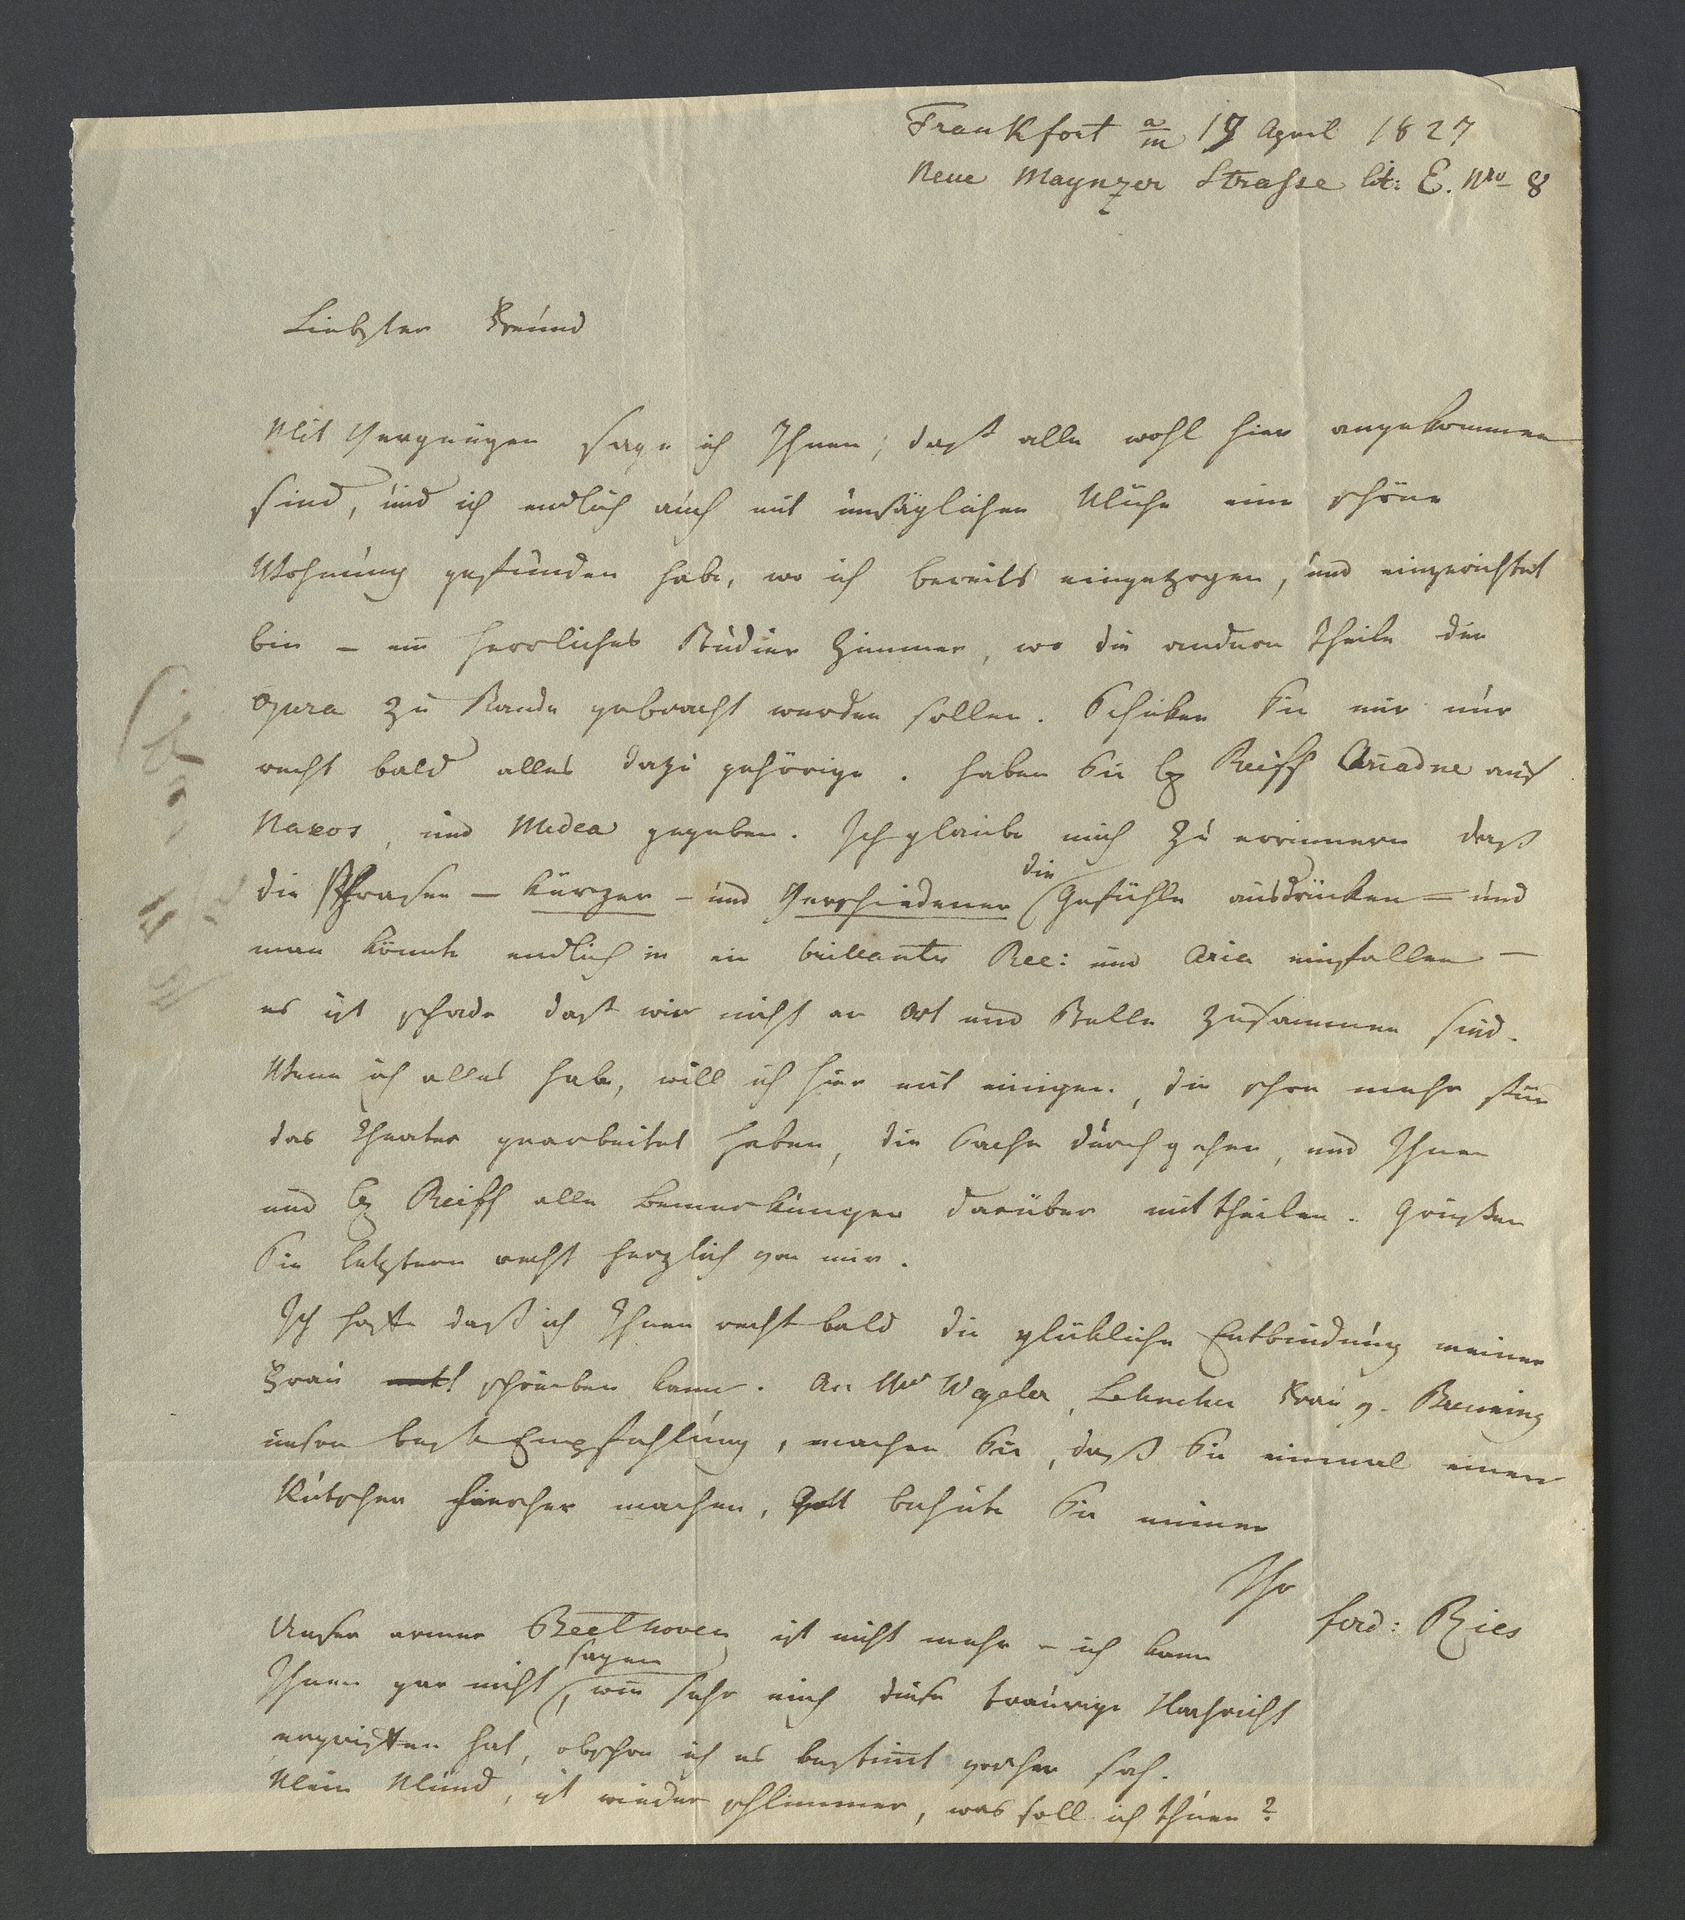 Frankfort a/m 19 April 1827
Neue Maynzer Strasse lit: E. Nro 8
Liebster Freund
Mit Vergnügen sage ich Ihnen, daß alle wohl hier angekommen
sind, und ich endlich auch mit unsäglicher Mühe eine schöne
Wohnung gefunden habe, wo ich bereits eingezogen, und eingerichtet
bin – ein herrliches Studier Zimmer, wo die andern Theile der
Opera zu Stande gebracht werden sollen. Schicken Sie mir nur
recht bald alles dazu gehörige. haben Sie Hr Reiff Ariadne auf
Naxos, und Medea gegeben. Ich glaube mich zu erinnern daß
die Phrasen – kürzer – und Verschiedener die Gefühle ausdrücken – und
man könnte endlich in ein brillantes Rec: und Aria einfallen –
es ist schade daß wir nicht an Ort und Stelle zusammen sind.
Wenn ich alles habe, will ich hier mit einigen, die schon mehr für
das Theater gearbeitet haben, die Sache durchgehen, und Ihnen
und Hr Reiff alle Bemerkungen darüber mittheilen. Grüßen
Sie letztern recht herzlich von mir.
Ich hoffe daß ich Ihnen recht bald die glückliche Entbindung meiner
Frau schreiben kann. An Wegeler, Frau v. Breuning
unsere beste Empfehlung, machen Sie, daß Sie einmal einen
Rutscher hierher machen, Gott behüte Sie immer
Ihr
ferd: Ries
Unser armer Beethoven ist nicht mehr – ich kann
Ihnen gar nicht sagen, wie sehr mich diese traurige Nachricht
ergriffen hat, obschon ich es bestimmt vorher sah.
Mein Mund, ist wieder schlimmer, was soll ich thuen?